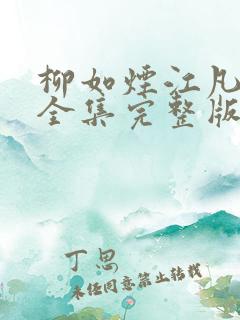 柳如煙江凡
全集完整版
丁思
未经同意禁止转载